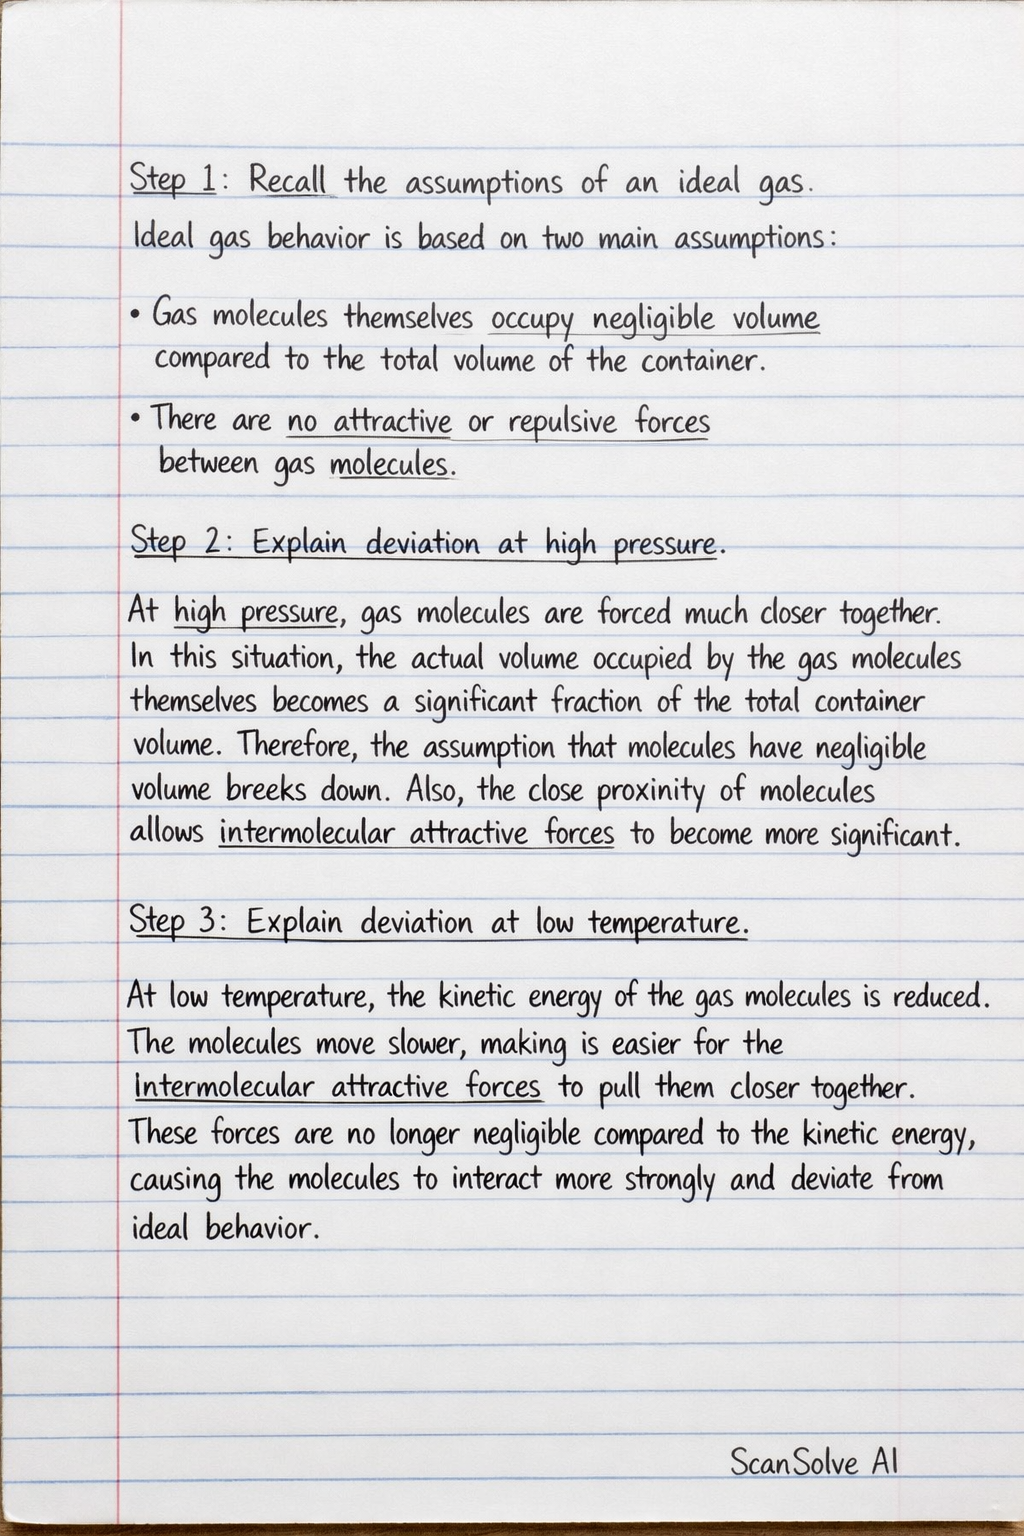 Step 1: Recall the assumptions of an ideal gas.
Ideal gas behavior is based on two main assumptions:
• Gas molecules themselves occupy negligible volume
compared to the total volume of the container.
• There are no attractive or repulsive forces
between gas molecules.
Step 2: Explain deviation at high pressure.
At high pressure, gas molecules are forced much closer together.
In this situation, the actual volume occupied by the gas molecules
themselves becomes a significant fraction of the total container
volume. Therefore, the assumption that molecules have negligible
volume breeks down. Also, the close proxinity of molecules
allows intermolecular attractive forces to become more significant.
Step 3: Explain deviation at low temperature.
At low temperature, the kinetic energy of the gas molecules is reduced.
The molecules move slower, making is easier for the
intermolecular attractive forces to pull them closer together.
These forces are no longer negligible compared to the kinetic energy,
causing the molecules to interact more strongly and deviate from
ideal behavior.
ScanSolve AI